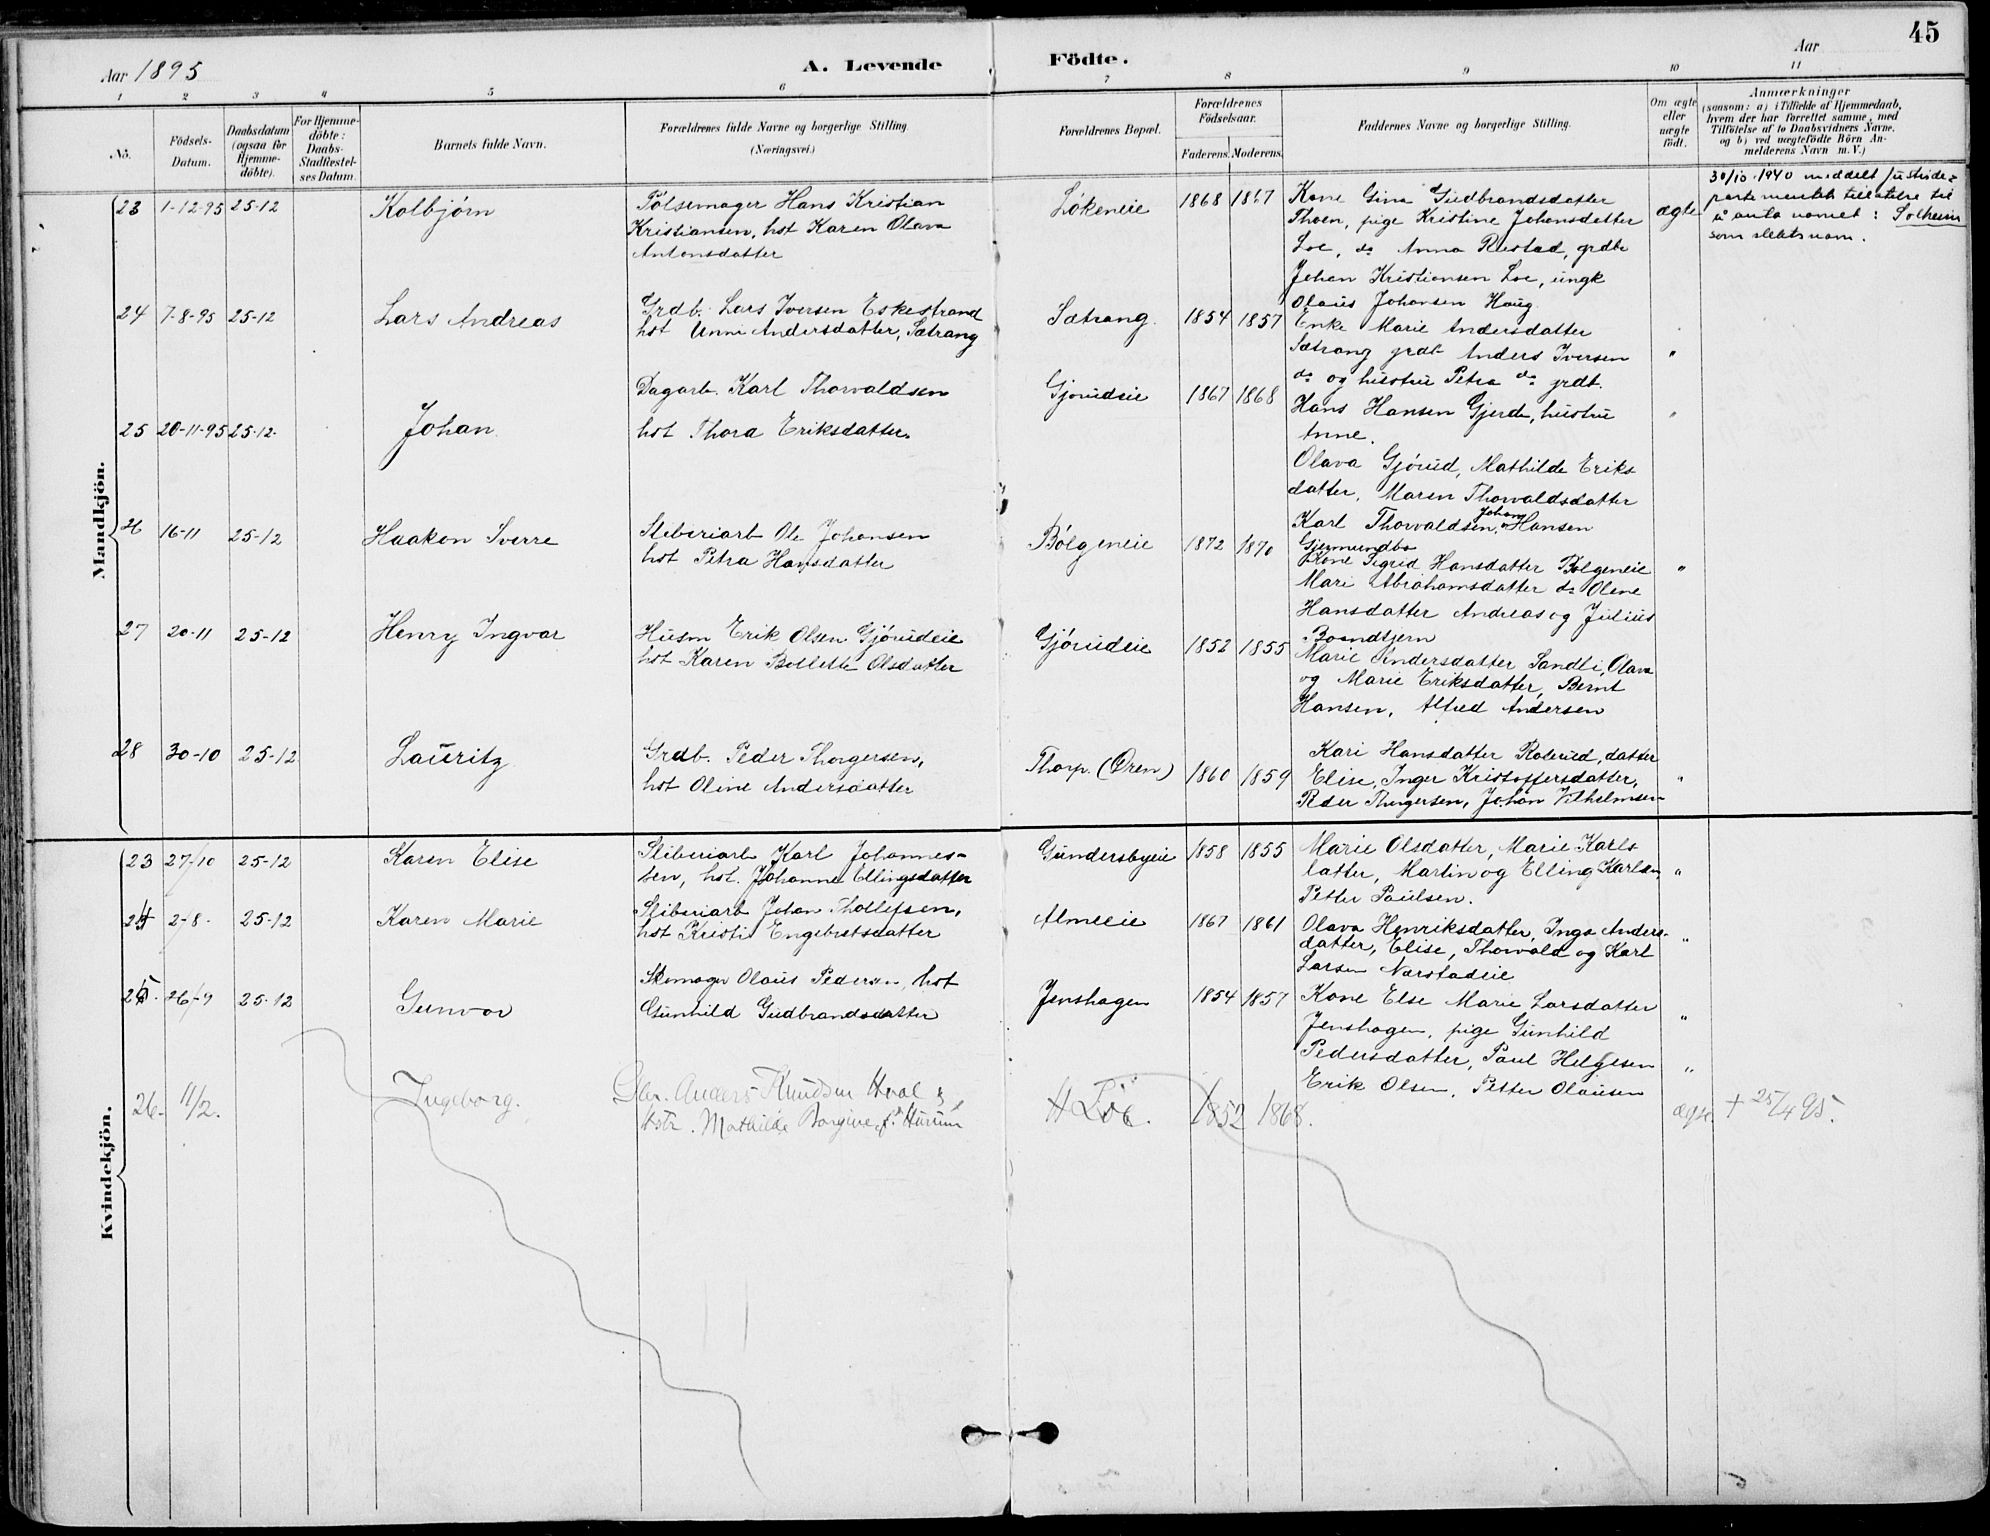 45
Aar 1895
A. Levende
Födte.
Aar
1 2 3 4 5 6 7 8 9 10 11
No.
Födsels-Datum.
Daabsdatum (ogsaa for Hjemme-döbte).
For Hjemme-döbte: Daabs-Stadfæstel-ses Datum.
Barnets fulde Navn.
Forældrenes fulde Navne og borgerlige Stilling.
(Næringsvei.)
Forældrenes Bopæl.
Forældrenes Födselsaar.
Faderens. Moderens.
Faddernes Navne og borgerlige Stilling.
Om ægte eller uægte födt.
Anmærkninger
(saasom: a) i Tilfælde af Hjemmedaab,
hvem der har forrettet samme, med
Tilföielse af to Daabsvidners Navne,
og b) ved uægtefödte Börn An-
melderens Navn m. V.)
Mandkjön.
23 1-12-95 25-12 Kolbjörn
Pölsemager Hans Kristian
Kristiansen, hst Karen Olava
Antonsdatter
Lökeneie 1868 1867
Kone Gina Gudbrandsdatter
Thoen, pige Kristine Johansdatter
Loe, do Anna Rustad, grdbr
Johan Kristiansen Loe, ungk
Olaus Johansen Haug.
ægte
30/10-1940 meddelt Justisde-
partementet tillatelse til
å anta navnet: Solheim
som slektsnavn.
24 7-8-95 25-12 Lars Andreas
Grdb. Lars Iversen Eskestrand
hst Unni Andersdatter, Sætrang
Sætrang. 1854 1857
Enke Marie Andersdatter
Sætrang grdb Anders Iversen
do og hustru Petra do grdb.
Hans Hansen Gjerde, hustru
Anne.
"
25 20-11-95 25-12. Johan
Dagarb. Karl Thorvaldsen
hst Thora Eriksdatter.
Gjörudeie 1867 1868
Olava Gjörud, Mathilde Eriks
datter, Maren Thorvaldsdatter
Karl Thorvaldsen, Johan Hansen
Gjermundbo
"
26 16-11 25-12 Haakon Sverre
Sliberiarb Ole Johansen
hst Petra Hansdatter
Bölgeneie 1872 1870
Kone Sigrid Hansdatter Bölgeneie
Mari Abrahamsdatter do Oline
Hansdatter Andreas og Julius
Brandtjern
"
27 20-11 25-12 Henry Ingvar
Husm Erik Olsen Gjörudeie
hst Karen Bollette Olsdatter
Gjörudeie 1852 1855
Marie Andersdatter Sandli, Olava
og Marie Eriksdatter, Bernt
Hansen, Alfred Andersen
28 30-10 25-12 Lauritz
Grdb. Peder Thorgersen,
hst Oline Andersdatter
Thorp. (Øren) 1860 1859
Kari Hansdatter Rolerud, datter
Elise, Inger Kristoffersdatter,
Peder Thorgersen, Johan Vilhelmsen
"
Kvindekjön.
23 27/10 25-12 Karen Elise
Sliberiarb Karl Johannes-
sen, hst. Johanne Ellingsdatter
Gundersbyeie 1858 1855
Marie Olsdatter, Marie Karls
datter, Martin og Elling Karlsen,
Petter Paulsen.
"
24 2-8- 25-12 Karen Marie
Sliberiarb Johan Thollefsen,
hst Kristi Engebretsdatter
Almeeie 1867 1861
Olava Henriksdatter, Inga Anders-
datter, Elise, Thorvald og Karl
Larsen Nærstadeie
"
25. 26-9 25-12 Gunvor
Skomager Olaus Pedersen, hst
Gunhild Gudbrandsdatter
Jenshagen 1854 1857
Kone Else Marie Larsdatter
Jenshagen, pige Gunhild
Pedersdatter, Paul Helgesen
Erik Olsen, Petter Olausen
"
"
26. 11/2. Ingeborg.
Anders Knudsen Hval &
hstr. Mathilde Borgine f. Hurum
Loe. 1852 1868.
ægte. + 25/4 95.